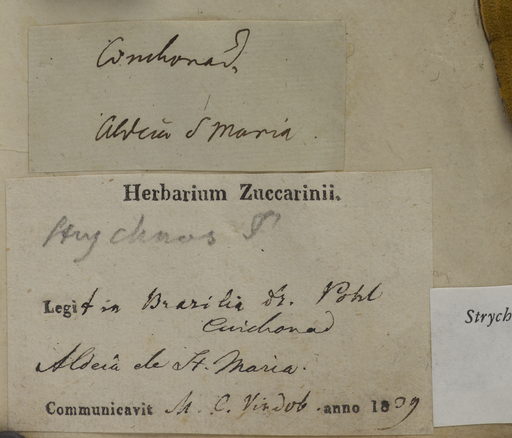 Conchonad,
Aldeia S Maria.
Herbarium Zuccarinii.
Strychnos
Legit in Brazilia Dr. Pohl
Cuichonad
Aldeia de St. Maria.
Communicavit M. C. Vindob. anno 1839
Strych